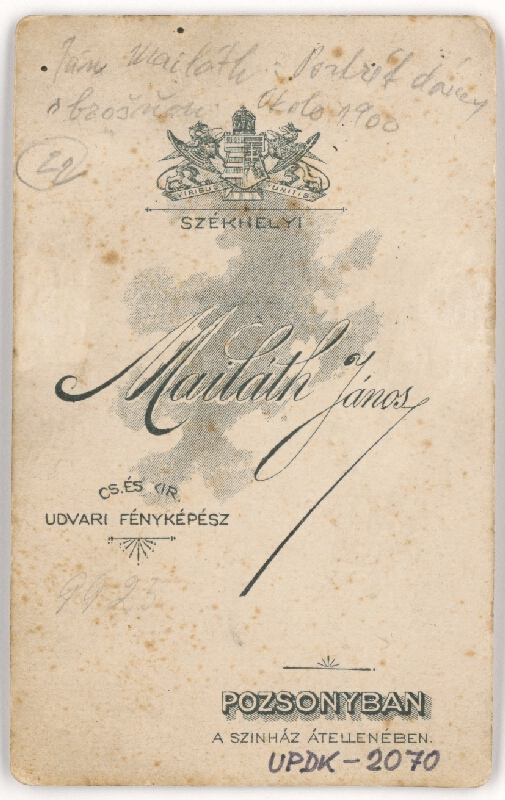 Ján Mailáth: Portrét dámy
s brošňou. Okolo 1900
22
VIRIBUS UNITIS
SZÉKHELYI
Mailáth János
CS. ÉS KIR.
UDVARI FÉNYKÉPÉSZ
9923
POZSONYBAN
A SZINHÁZ ÁTELLENÉBEN.
UPDK-2070